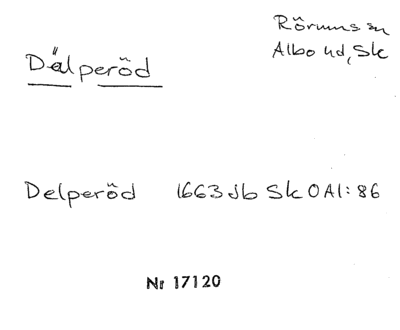 Rörums sn
Albo hd, Sk
Dälperöd
Delperöd 1663 Jb Sk O Al: 86
Nr 17120